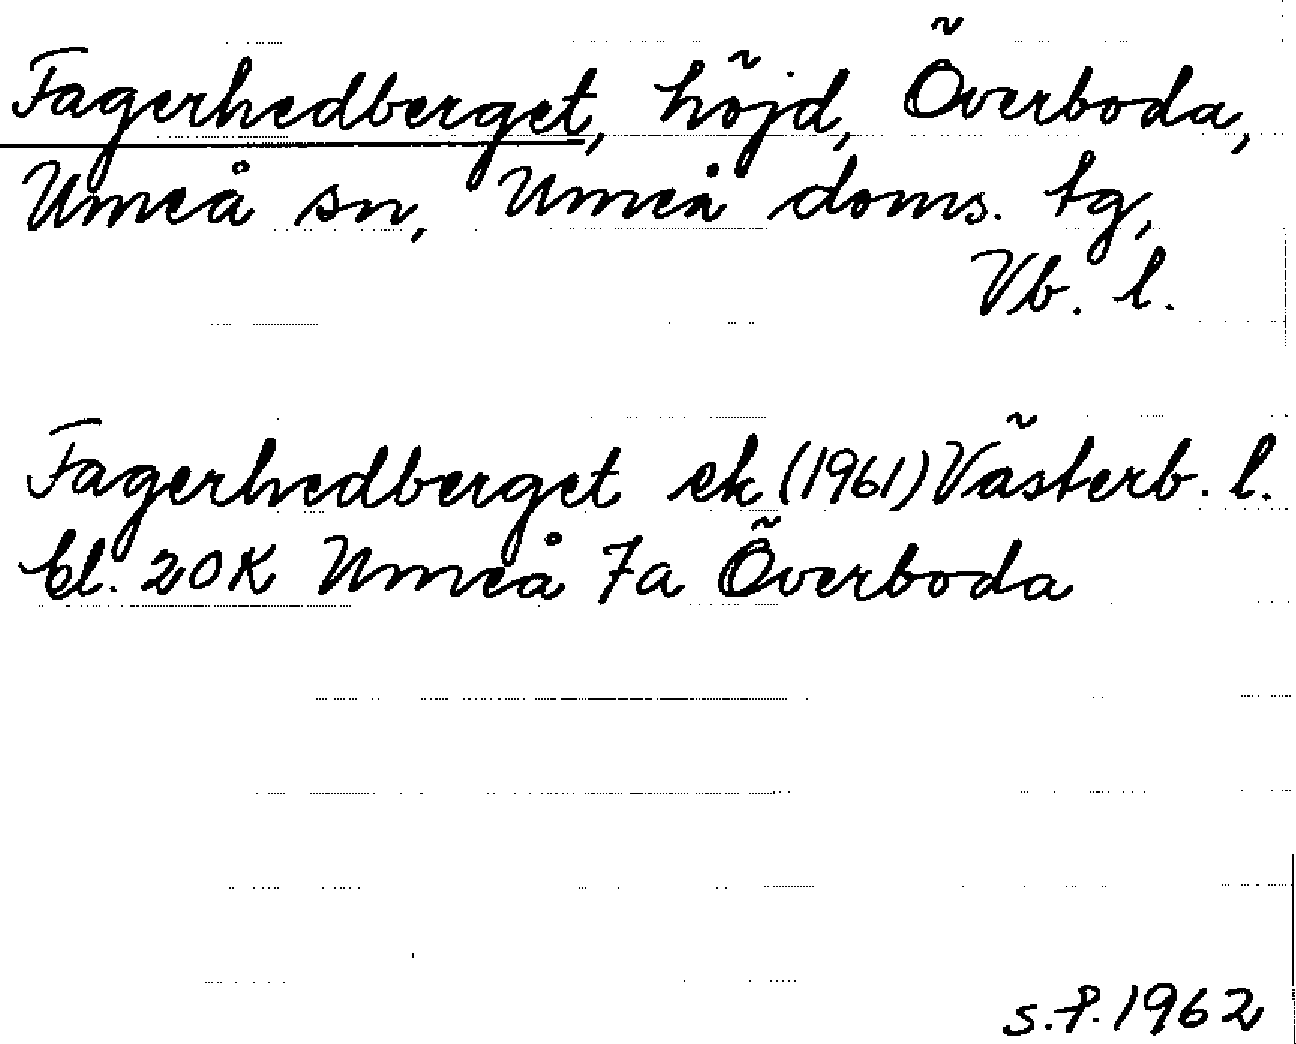 Fagerhedberget, höjd, Överboda,
Umeå sn, Umeå doms. tg,
Vb. l.
Fagerhedberget ek (1961) Västerb. l.
bl. 20K Umeå 7a Överboda
s.P. 1962